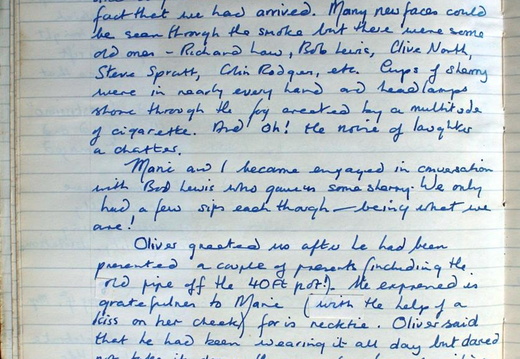 fact that we had arrived. Many new faces could
be seen through the smoke but there were some
old ones - Richard Law, Bob Lewis, Clive North,
Steve Spratt, Colin Rodger, etc. Cups of sherry
were in nearly every hand and headlamps
shone through the fog created by a multitude
of cigarette. And Oh! the noise of laughter
a chatter.
Marie and I became engaged in conversation
with Bob Lewis who gave us some sherry. We only
had a few sips each though - being what we
are!
Oliver greeted us after he had been
presented a couple of presents (including the
old pipe off the 40ft pot!). He expressed is
gratefulness to Marie (with the help of a
kiss on her cheek) for is necktie. Oliver said
that he had been wearing it all day but dared
not take it